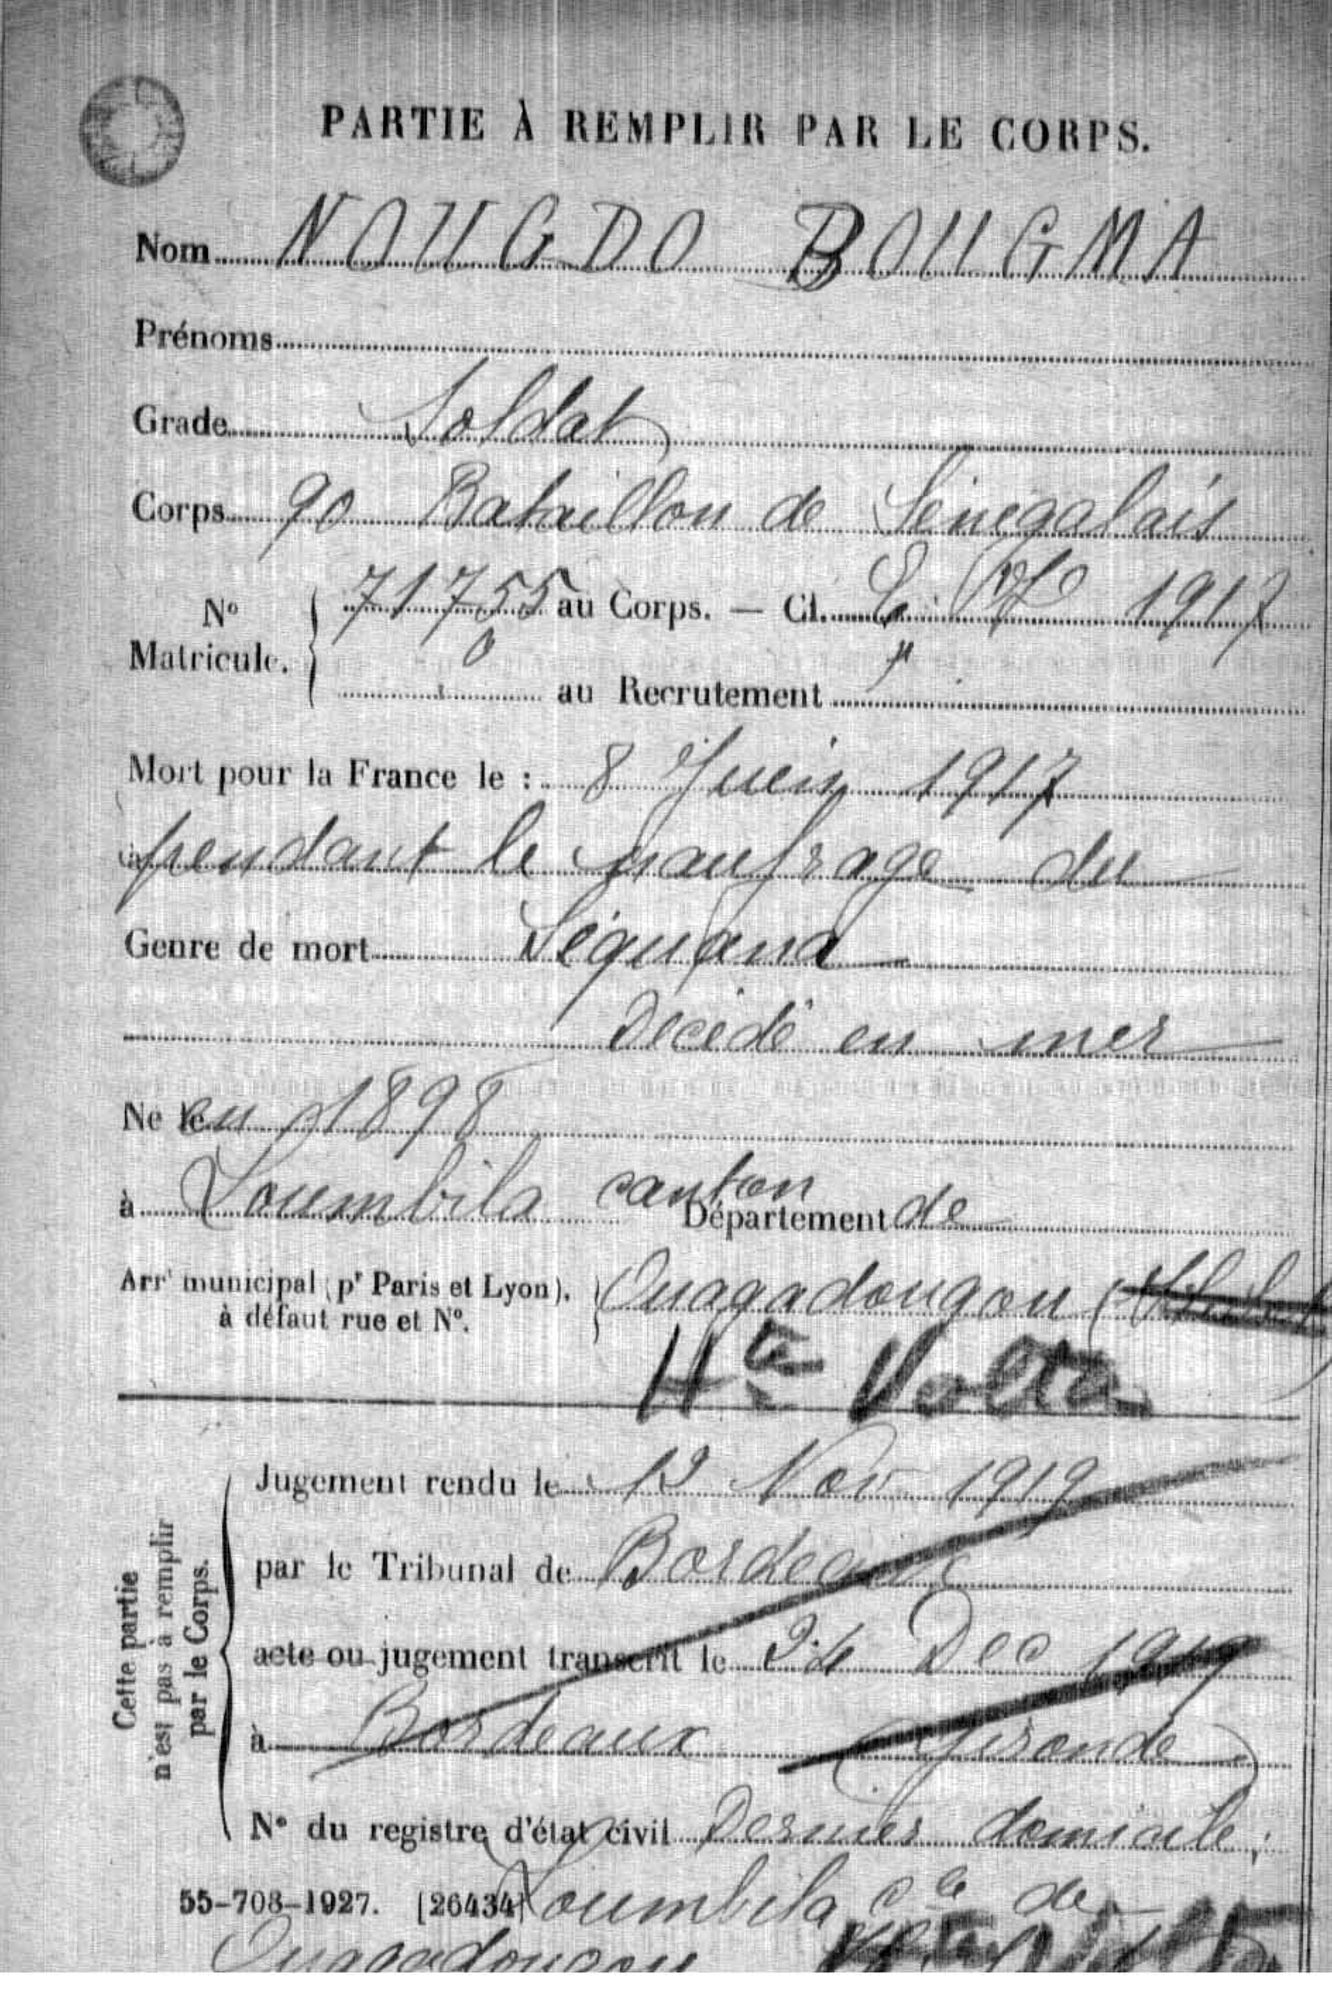 PARTIE À REMPLIR PAR LE CORPS.
Nom NOUGDO BOUGMA
Prénoms
Grade Soldat
Corps 90 Bataillon de Sénégalais
N° Matricule. 71755 au Corps. — Cl. 1917
au Recrutement
Mort pour la France le : 8 Juin 1917
à pendant le naufrage du
Genre de mort Séquana
Décédé en mer
Né le en 1898
à Loumbila canton Département de
Arrt municipal (pr Paris et Lyon), à défaut rue et N°. Ouagadougou
Hte Volta
Cette partie n'est pas à remplir par le Corps.
Jugement rendu le 12 Nov 1919
par le Tribunal de Bordeaux
acte ou jugement transcrit le 24 Dec 1919
à Bordeaux (Gironde)
N° du registre d'état civil Dernier domicile,
55-708-1927. [26434] Loumbila de
Ouagadougou Hte Volta